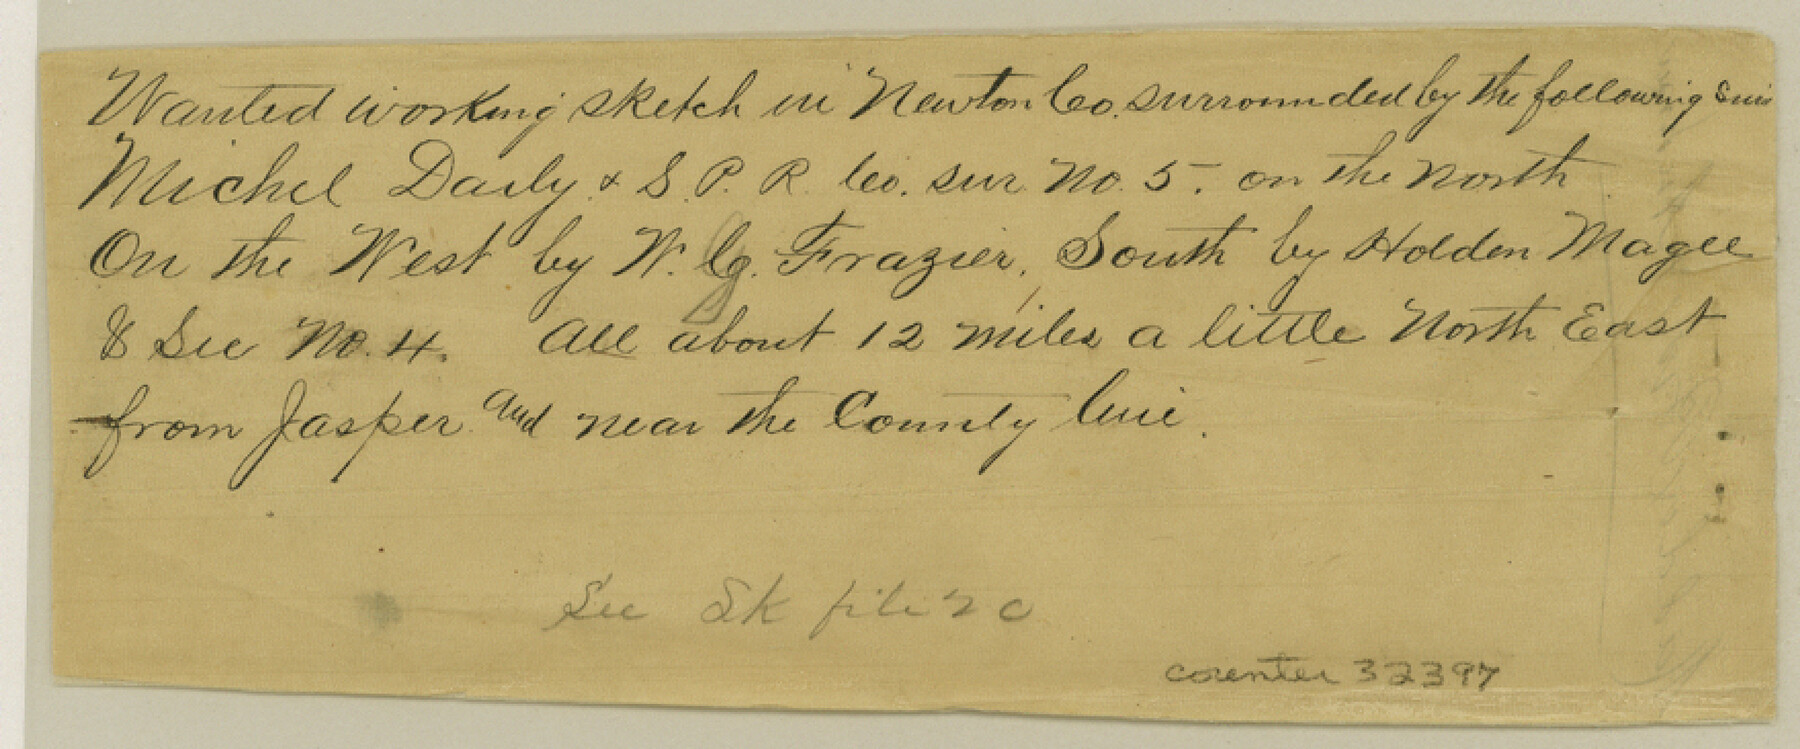 Wanted working sketch in Newton Co. surrounded by the following surs
Michel Daily & S. P. R. Co. sur No. 5. on the North
On the West by W. G. Frazier, South by Holden Magee
& Sec No. 4. All about 12 miles a little North East
from Jasper and near the County line.
See Sk file 2 c
counter 32397